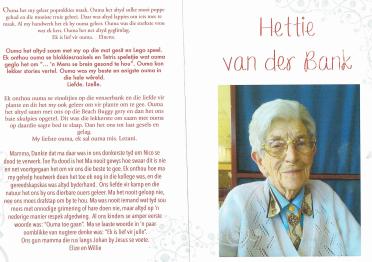 Ouma het my geleer poprokkies maak. Ouma het altyd sulke mooi poppe
gehad en die mooiste truie gebrei. Daar was altyd lappies om iets mee te
maak. Al my handewerk het ek by ouma geleer. Ouma was die sterkste vrou
wat ek ken. Ouma het net altyd geglimlag.
Ek is lief vir ouma.
Ouma het altyd saam met my op die mat gesit en Lego speel.
Ek onthou ouma se blokkiesraaisels en Tetris speletjie wat ouma
geglo het om "... 'n Mens se brein gesond te hou". Ouma kon
lekker stories vertel. Ouma was my beste en enigste ouma in
die hele wêreld.
Liefde. Izelle.
Ek onthou ouma se viooltjies op die vensterbank en die liefde vir
plante en dit het my ook geleer om vir plante om te gee. Ouma
het altyd saam met ons op die Beach Buggy gery en dan het ons
baie skulpies opgetel. Dit was die lekkerste om saam met ouma
op daardie sagte bed te slaap. Dan het ons tot laat gesels en
gelag.
My liefste ouma, ek sal ouma mis. Lezant.
Mamma, Dankie dat ma daar was in ons donkerste tyd om Nico se
dood te verwerk. Ter Pa dood is het Ma nooit gewys hoe swaar dit is nie
en net voortgegaan het om vir ons die beste te gee. Ek onthou hoe ma
my gehelp houtwerk doen het toe ek nog in die kollege was, en die
gereedskapkissie was altyd byderhand. Ons liefde vir kamp en die
natuur het ons by ons dierbare ouers geleer. Ma het nooit geloop nie,
nee ons moes drafstap om by te hou. Ma was nooit iemand wat tyd sou
mors met onnodige grimering of hare doen nie, maar altyd op 'n
nederige manier respek afgedwing. Al ons kinders se amper eerste
woorde was: "Ouma toe gaan". Ma se laaste woorde in 'n paar
oomblikke van nugtere denke was: "Ek is lief vir julle".
Ons gun mamma die rus langs Johan by Jesus se voete.
Elize en Willie
Hettie
van der Bank